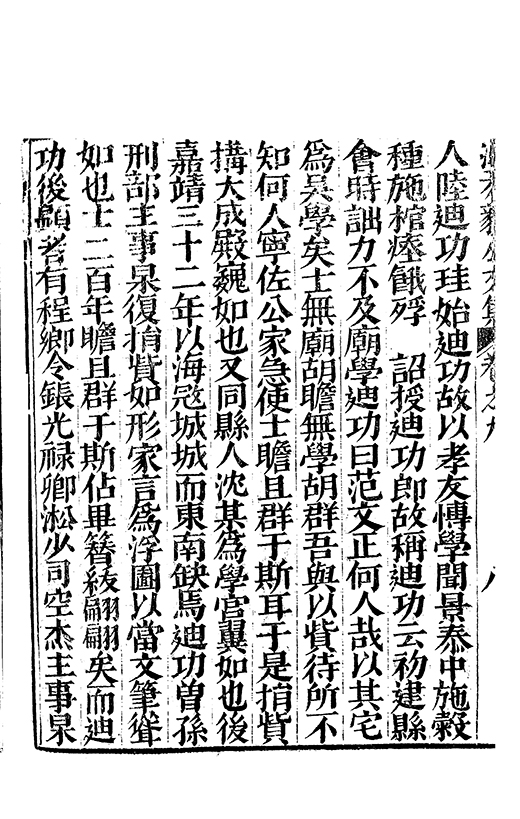 卷之九 八
人陸迪功珪始迪功故以孝友博學聞景泰中施穀
種施棺瘞餓殍 詔授迪功郎故稱迪功云初建縣
會時詘力不及廟學迪功曰范文正何人哉以其宅
爲吳學矣士無廟胡瞻無學胡群吾與以貲待所不
知何人寧佐公家急使士瞻且群于斯耳于是捐貲
搆大成殿巍如也又同縣人沈某爲學官翼如也後
嘉靖三十二年以海寇城城而東南缺焉迪功曾孫
刑部主事杲復捐貲如形家言爲浮圖以當文筆聳
如也士二百年瞻且群于斯佔畢簪紱翩翩矣而迪
功後顯者有程鄉令鋹光祿卿淞少司空杰主事杲